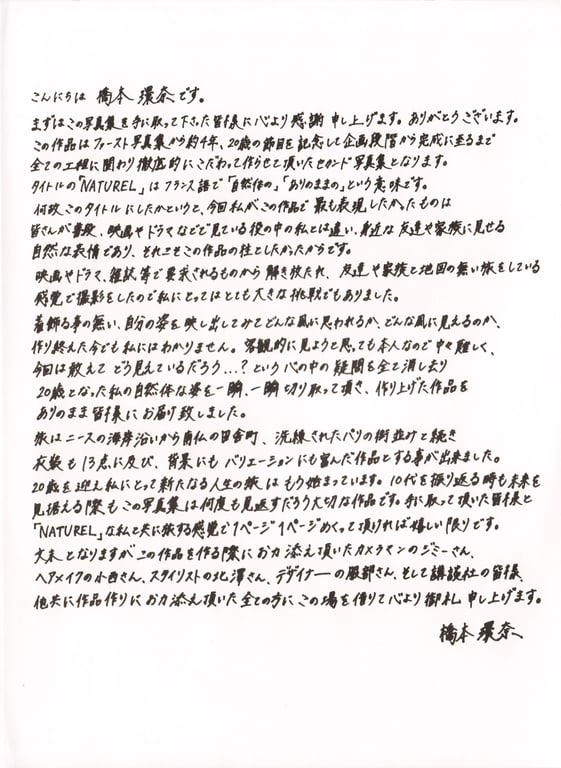 こんにちは 橋本 環奈です。
まずはこの写真集を手に取って下さった皆様に心より感謝 申し上げます。ありがとうございます。
この作品はファースト写真集から約4年、20歳の節目を記念して企画段階から完成に至るまで
全ての工程に関わり徹底的にこだわって作らせて頂いたセカンド写真集となります。
タイトルの「NATUREL」はフランス語で「自然体の」「ありのままの」という意味です。
何故このタイトルにしたかというと、今回私がこの作品で最も表現したかったものは
皆さんが普段、映画やドラマなどで見ている役の中の私とは違い、身近な友達や家族に見せる
自然な表情であり、それこそこの作品の柱としたかったからです。
映画やドラマ、雑誌等で要求されるものから解き放たれ、友達や家族と地図の無い旅をしている
感覚で撮影をしたので私にとってはとても大きな挑戦でもありました。
着飾る事の無い、自分の姿を映し出してみてどんな風に思われるか、どんな風に見えるのか、
作り終えた今でも私にはわかりません。客観的に見ようと思っても本人なので中々難しく、
今回は敢えて どう見えているだろう...？という心の中の疑問を全て消し去り
20歳となった私の自然体な姿を一瞬、一瞬切り取って頂き、作り上げた作品を
ありのまま皆様にお届け致しました。
旅はニースの海岸沿いから南仏の田舎町、洗練されたパリの街並みと続き
衣装も13点に及び、背景にもバリエーションにも富んだ作品とする事が出来ました。
20歳を迎え私にとって新たなる人生の旅はもう始まっています。10代を振り返る時も未来を
見据える際もこの写真集は何度も見返すだろう大切な作品です。手に取って頂いた皆様と
「NATUREL」な私と共に旅する感覚で1ページ1ページめくって頂ければ嬉しい限りです。
文末となりますがこの作品を作る際にお力添え頂いたカメラマンのジミーさん、
ヘアメイクの小西さん、スタイリストの北澤さん、デザイナーの服部さん、そして講談社の皆様、
他共に作品作りにお力添え頂いた全ての方にこの場を借りて心より御礼申し上げます。
橋本 環奈